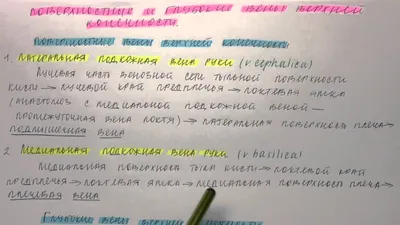 ПОВЕРХНОСТНЫЕ И ГЛУБОКИЕ ВЕНЫ ВЕРХНЕЙ
КОНЕЧНОСТИ.
ПОВЕРХНОСТНЫЕ ВЕНЫ ВЕРХНЕЙ КОНЕЧНОСТИ:
1. ЛАТЕРАЛЬНАЯ ПОДКОЖНАЯ ВЕНА РУКИ (v cephalica)
ЛУЧЕВАЯ ЧАСТЬ ВЕНОЗНОЙ СЕТИ ТЫЛЬНОЙ ПОВЕРХНОСТИ
КИСТИ → ЛУЧЕВОЙ КРАЙ ПРЕДПЛЕЧЬЯ → ЛОКТЕВАЯ ЯМКА
(АНАСТОМОЗ С МЕДИАЛЬНОЙ ПОДКОЖНОЙ ВЕНОЙ —
ПРОМЕЖУТОЧНАЯ ВЕНА ЛОКТЯ) → ЛАТЕРАЛЬНАЯ ПОВЕРХНОСТЬ ПЛЕЧА →
ПОДМЫШЕЧНАЯ ВЕНА
2. МЕДИАЛЬНАЯ ПОДКОЖНАЯ ВЕНА РУКИ (v basilica)
МЕДИАЛЬНАЯ ПОВЕРХНОСТЬ ТЫЛА КИСТИ → ЛОКТЕВОЙ КРАЙ
ПРЕДПЛЕЧЬЯ → ЛОКТЕВАЯ ЯМКА → МЕДИАЛЬНАЯ ПОВЕРХНОСТЬ ПЛЕЧА →
ПЛЕЧЕВАЯ ВЕНА
ГЛУБОКИЕ ВЕНЫ ВЕРХНЕЙ